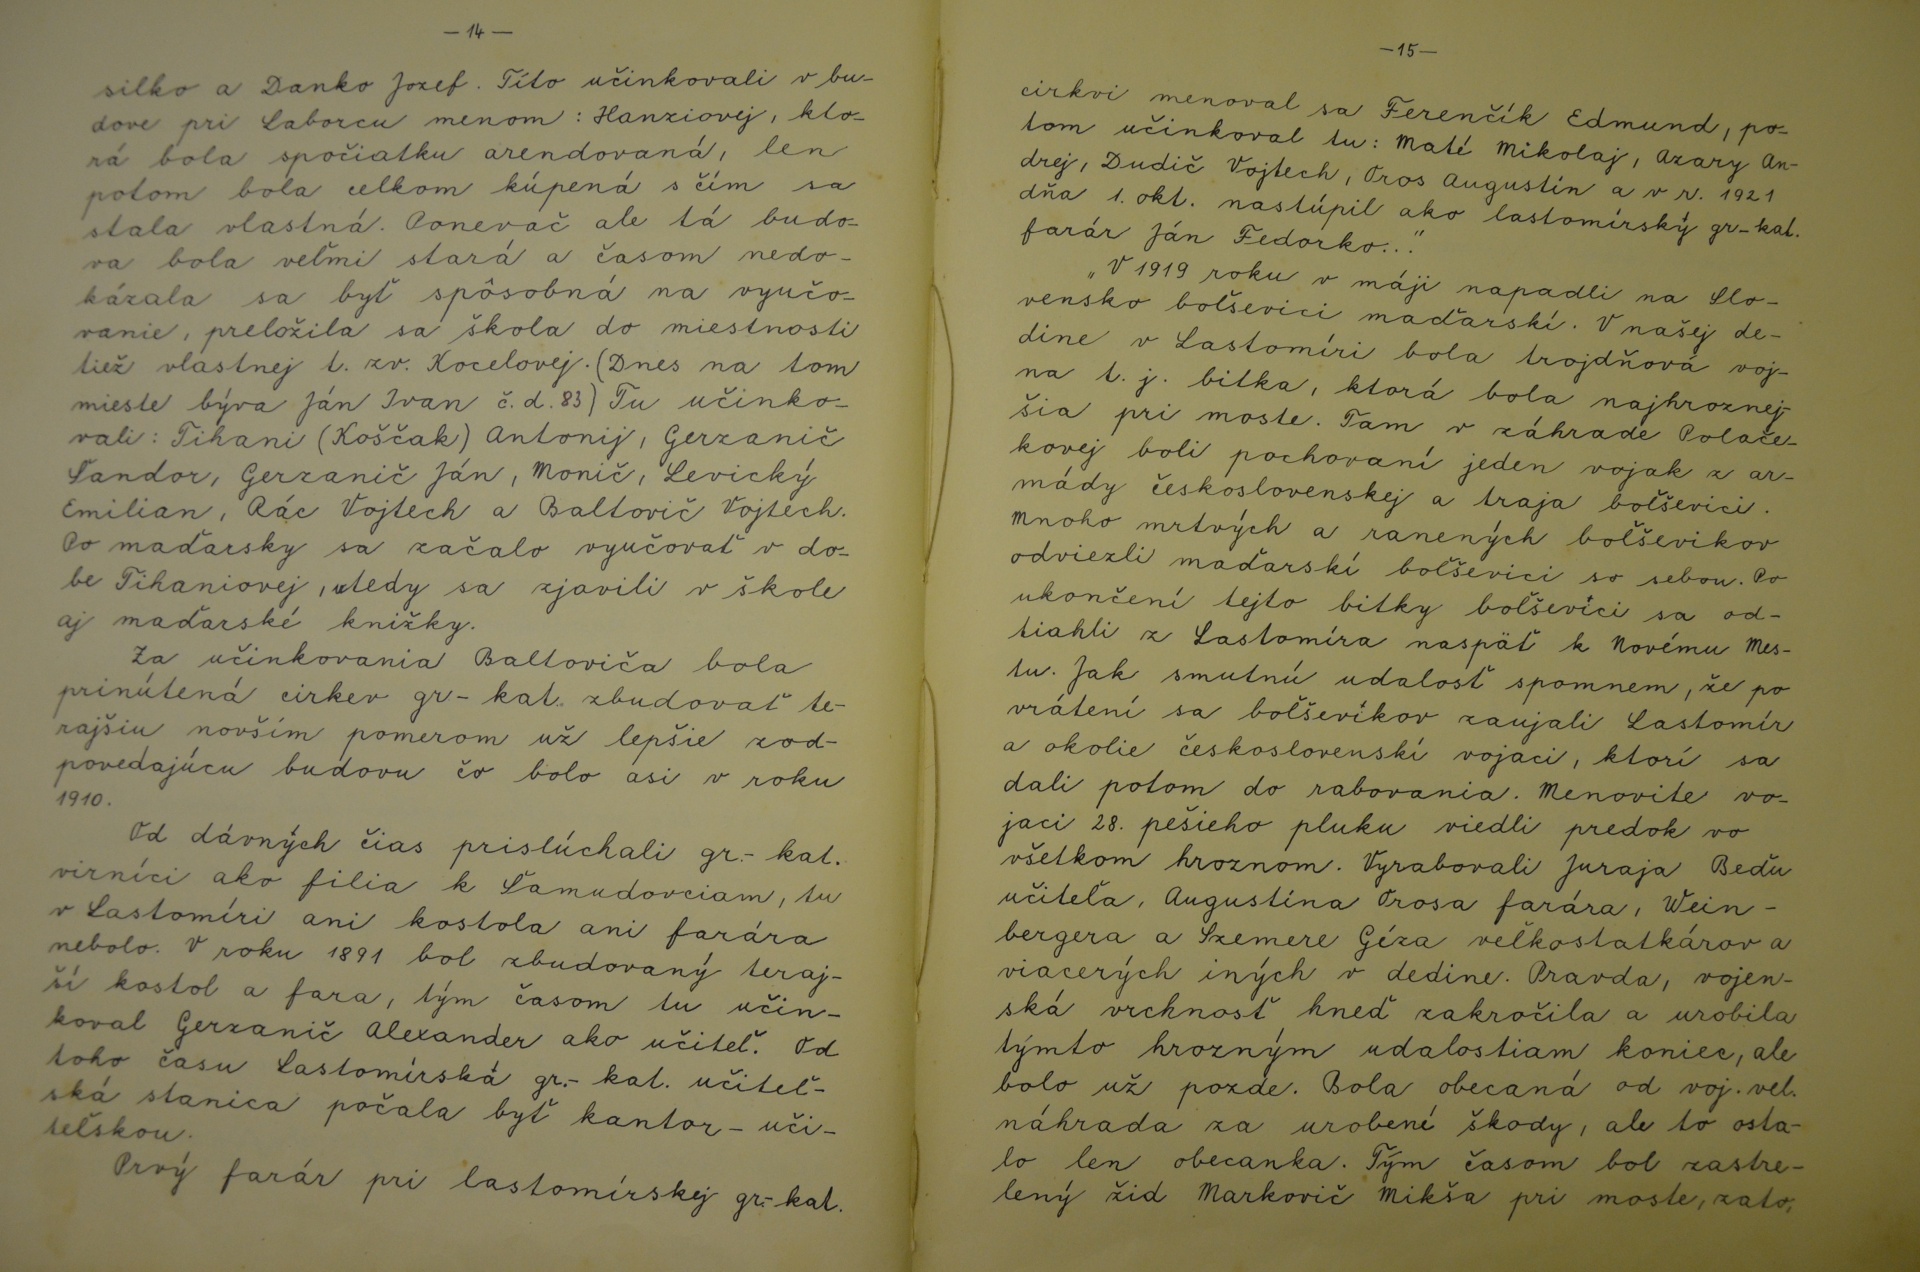 — 14 —
silko a Danko Jozef. Títo učinkovali v bu-
dove pri Laborcu menom: Hanziovej, kto-
rá bola spočiatku arendovaná, len
potom bola celkom kúpená s čím sa
stala vlastná. Ponevač ale tá budo-
va bola veľmi stará a časom nedo-
kázala sa byť spôsobná na vyučo-
vanie, preložila sa škola do miestnosti
tiež vlastnej t. zv. Kocelovej. (Dnes na tom
mieste býva Ján Ivan č. d. 83) Tu učinko-
vali: Tihani (Koščak) Antonij, Gerzanič
Šandor, Gerzanič Ján, Monič, Levický
Emilian, Rác Vojtech a Baltovič Vojtech.
Po maďarsky sa začalo vyučovať v do-
be Tihaniovej, vtedy sa zjavili v škole
aj maďarské knižky.
Za učinkovania Baltoviča bola
prinútená cirkev gr-kat. zbudovať te-
rajšiu novším pomerom už lepšie zod-
povedajúcu budovu čo bolo asi v roku
1910.
Od dávných čias prislúchali gr.-kat.
virníci ako filia k Šamudovciam, tu
v Lastomíri ani kostola ani farára
nebolo. V roku 1891 bol zbudovaný teraj-
ší kostol a fara, tým časom tu učin-
koval Gerzanič Alexander ako učiteľ. Od
toho času Lastomírská gr.-kat. učiteľ-
ská stanica počala byť kantor-uči-
teľskou.
Prvý farár pri lastomírskej gr.-kat.
—15—
cirkvi menoval sa Ferenčík Edmund, po-
tom učinkoval tu: Maté Mikolaj, Azary An-
drej, Dudič Vojtech, Oros Augustín a v r. 1921
dňa 1. okt. nastúpil ako lastomírský gr-kat.
farár Ján Fedorko..."
„V 1919 roku v máji napadli na Slo-
vensko boľševici maďarskí. V našej de-
dine v Lastomíri bola trojdňová voj-
na t. j. bitka, ktorá bola najhroznej-
šia pri moste. Tam v záhrade Polače-
kovej boli pochovaní jeden vojak z ar-
mády československej a traja boľševici.
Mnoho mrtvých a ranených boľševikov
odviezli maďarskí boľševici so sebou. Po
ukončení tejto bitky boľševici sa od-
tiahli z Lastomíra naspäť k Novému Mes-
tu. Jak smutnú udalosť spomnem, že po
vrátení sa boľševikov zaujali Lastomír
a okolie československí vojaci, ktorí sa
dali potom do rabovania. Menovite vo-
jaci 28. pešieho pluku viedli predok vo
všetkom hroznom. Vyrabovali Juraja Beďu
učiteľa, Augustína Orosa farára, Wein-
bergera a Szemere Géza veľkostatkárov a
viacerých iných v dedine. Pravda, vojen-
ská vrchnosť hneď zakročila a urobila
týmto hrozným udalostiam koniec, ale
bolo už pozde. Bola obecaná od voj. vel.
náhrada za urobené škody, ale to osta-
lo len obecanka. Tým časom bol zastre-
lený žid Markovič Mikša pri moste, zato,